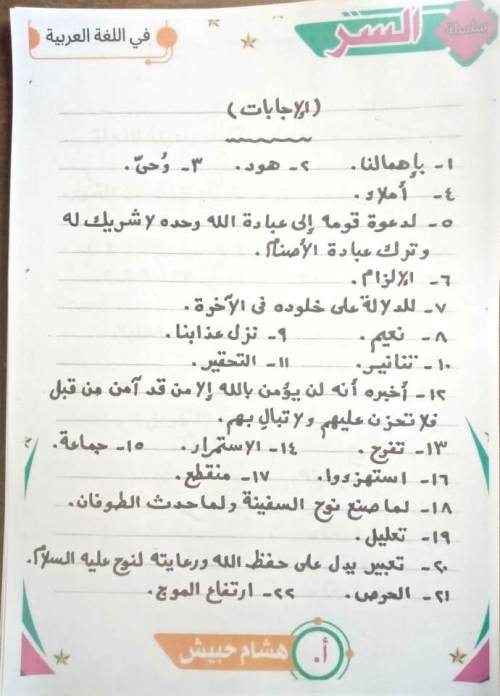 سلسلة السر في اللغة العربية
(الإجابات)
١- بإهمالنا. ٢- هود. ٣- وُحِيّ.
٤- أملاك.
٥- لدعوة قومه إلى عبادة الله وحده لا شريك له
وترك عبادة الأصنام.
٦- الإلزام.
٧- للدلالة على خلوده فى الآخرة.
٨- نعيم. ٩- نزل عذابنا.
١٠- تنانير. ١١- التحقير.
١٢- أخبره أنه لن يؤمن بالله إلا من قد آمن من قبل
فلا تحزن عليهم ولا تبالِ بهم.
١٣- تفرح. ١٤- الاستمرار. ١٥- جماعة.
١٦- استهزءوا. ١٧- منقطع.
١٨- لما صنع نوح السفينة ولما حدث الطوفان.
١٩- تعليل.
٢٠- تعبير يدل على حفظ الله ورعايته لنوح عليه السلام.
٢١- الحرص. ٢٢- ارتفاع الموج.
أ. هشام حبيش